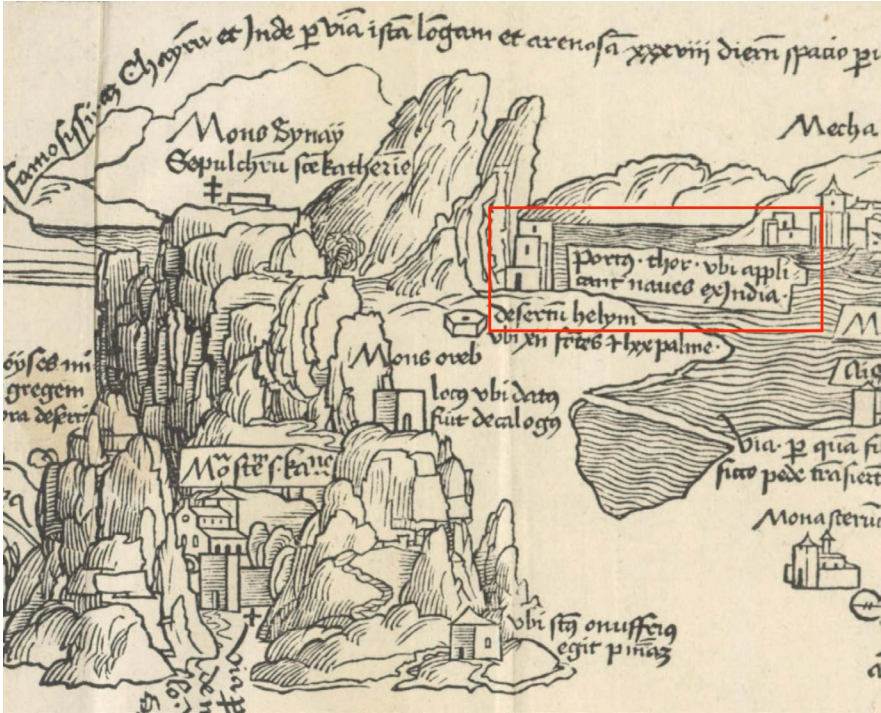 famosissimā Chayrū et Inde ꝑ viā istā lōgam et arenosā xxxviii dierū spacio ꝑu
Mons Synaÿ
Sepulchrū scē katherīe
Mecha
portꝰ · thor · vbi appli⸗
cant naues ex India ·
desertū helym
vbi xii fōtes ⁊ lxx palme ·
Mons oreb
oÿses mi
gregem
ora deserti
locꝰ vbi datꝰ
fuit decalogꝰ
M
Via · ꝑ quā fi
sicco pede trāsierūt
Monasteriū
vbi scꝰ onuffriꝰ
egit pnīaz